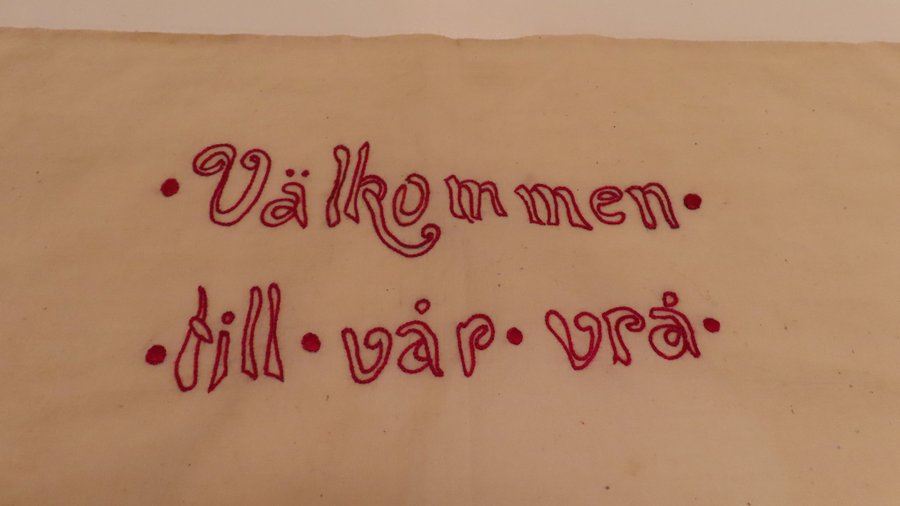 • Välkommen •
• till • vår • vrå •